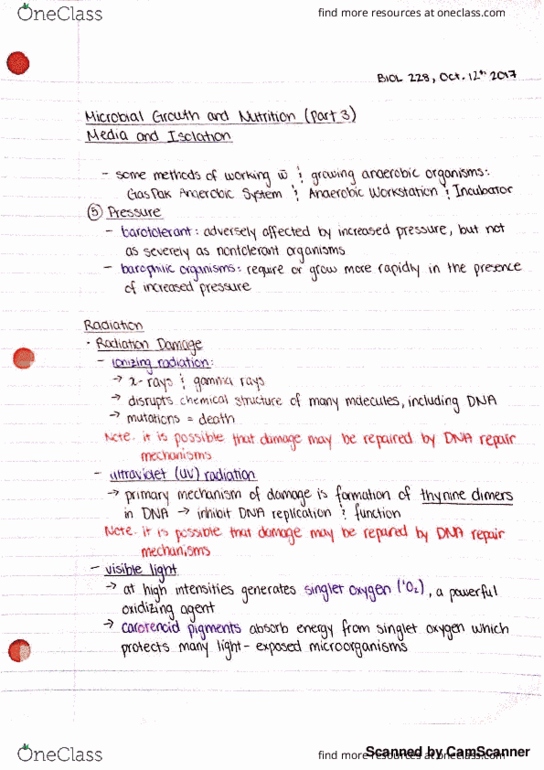 OneClass
find more resources at oneclass.com
BIOL 228, Oct. 12th 2017
Microbial Growth and Nutrition (Part 3)
Media and Isolation
- some methods of working w̄ & growing anaerobic organisms:
GasPak Anaerobic System & Anaerobic Workstation & Incubator
⑤ Pressure
- barotolerant: adversely affected by increased pressure, but not
as severely as nontolerant organisms
- barophilic organisms: require or grow more rapidly in the presence
of increased pressure
Radiation
• Radiation Damage
- Ionizing radiation:
→ x-rays & gamma rays
→ disrupts chemical structure of many molecules, including DNA
→ mutations = death
Note. it is possible that damage may be repaired by DNA repair
mechanisms
- ultraviolet (UV) radiation
→ primary mechanism of damage is formation of thynine dimers
in DNA → inhibit DNA replication & function
Note. it is possible that damage may be repaired by DNA repair
mechanisms
- visible light
→ at high intensities generates singlet oxygen (¹O₂), a powerful
oxidizing agent
→ carotenoid pigments absorb energy from singlet oxygen which
protects many light-exposed microorganisms
OneClass
find more resources at oneclass.com
Scanned by CamScanner